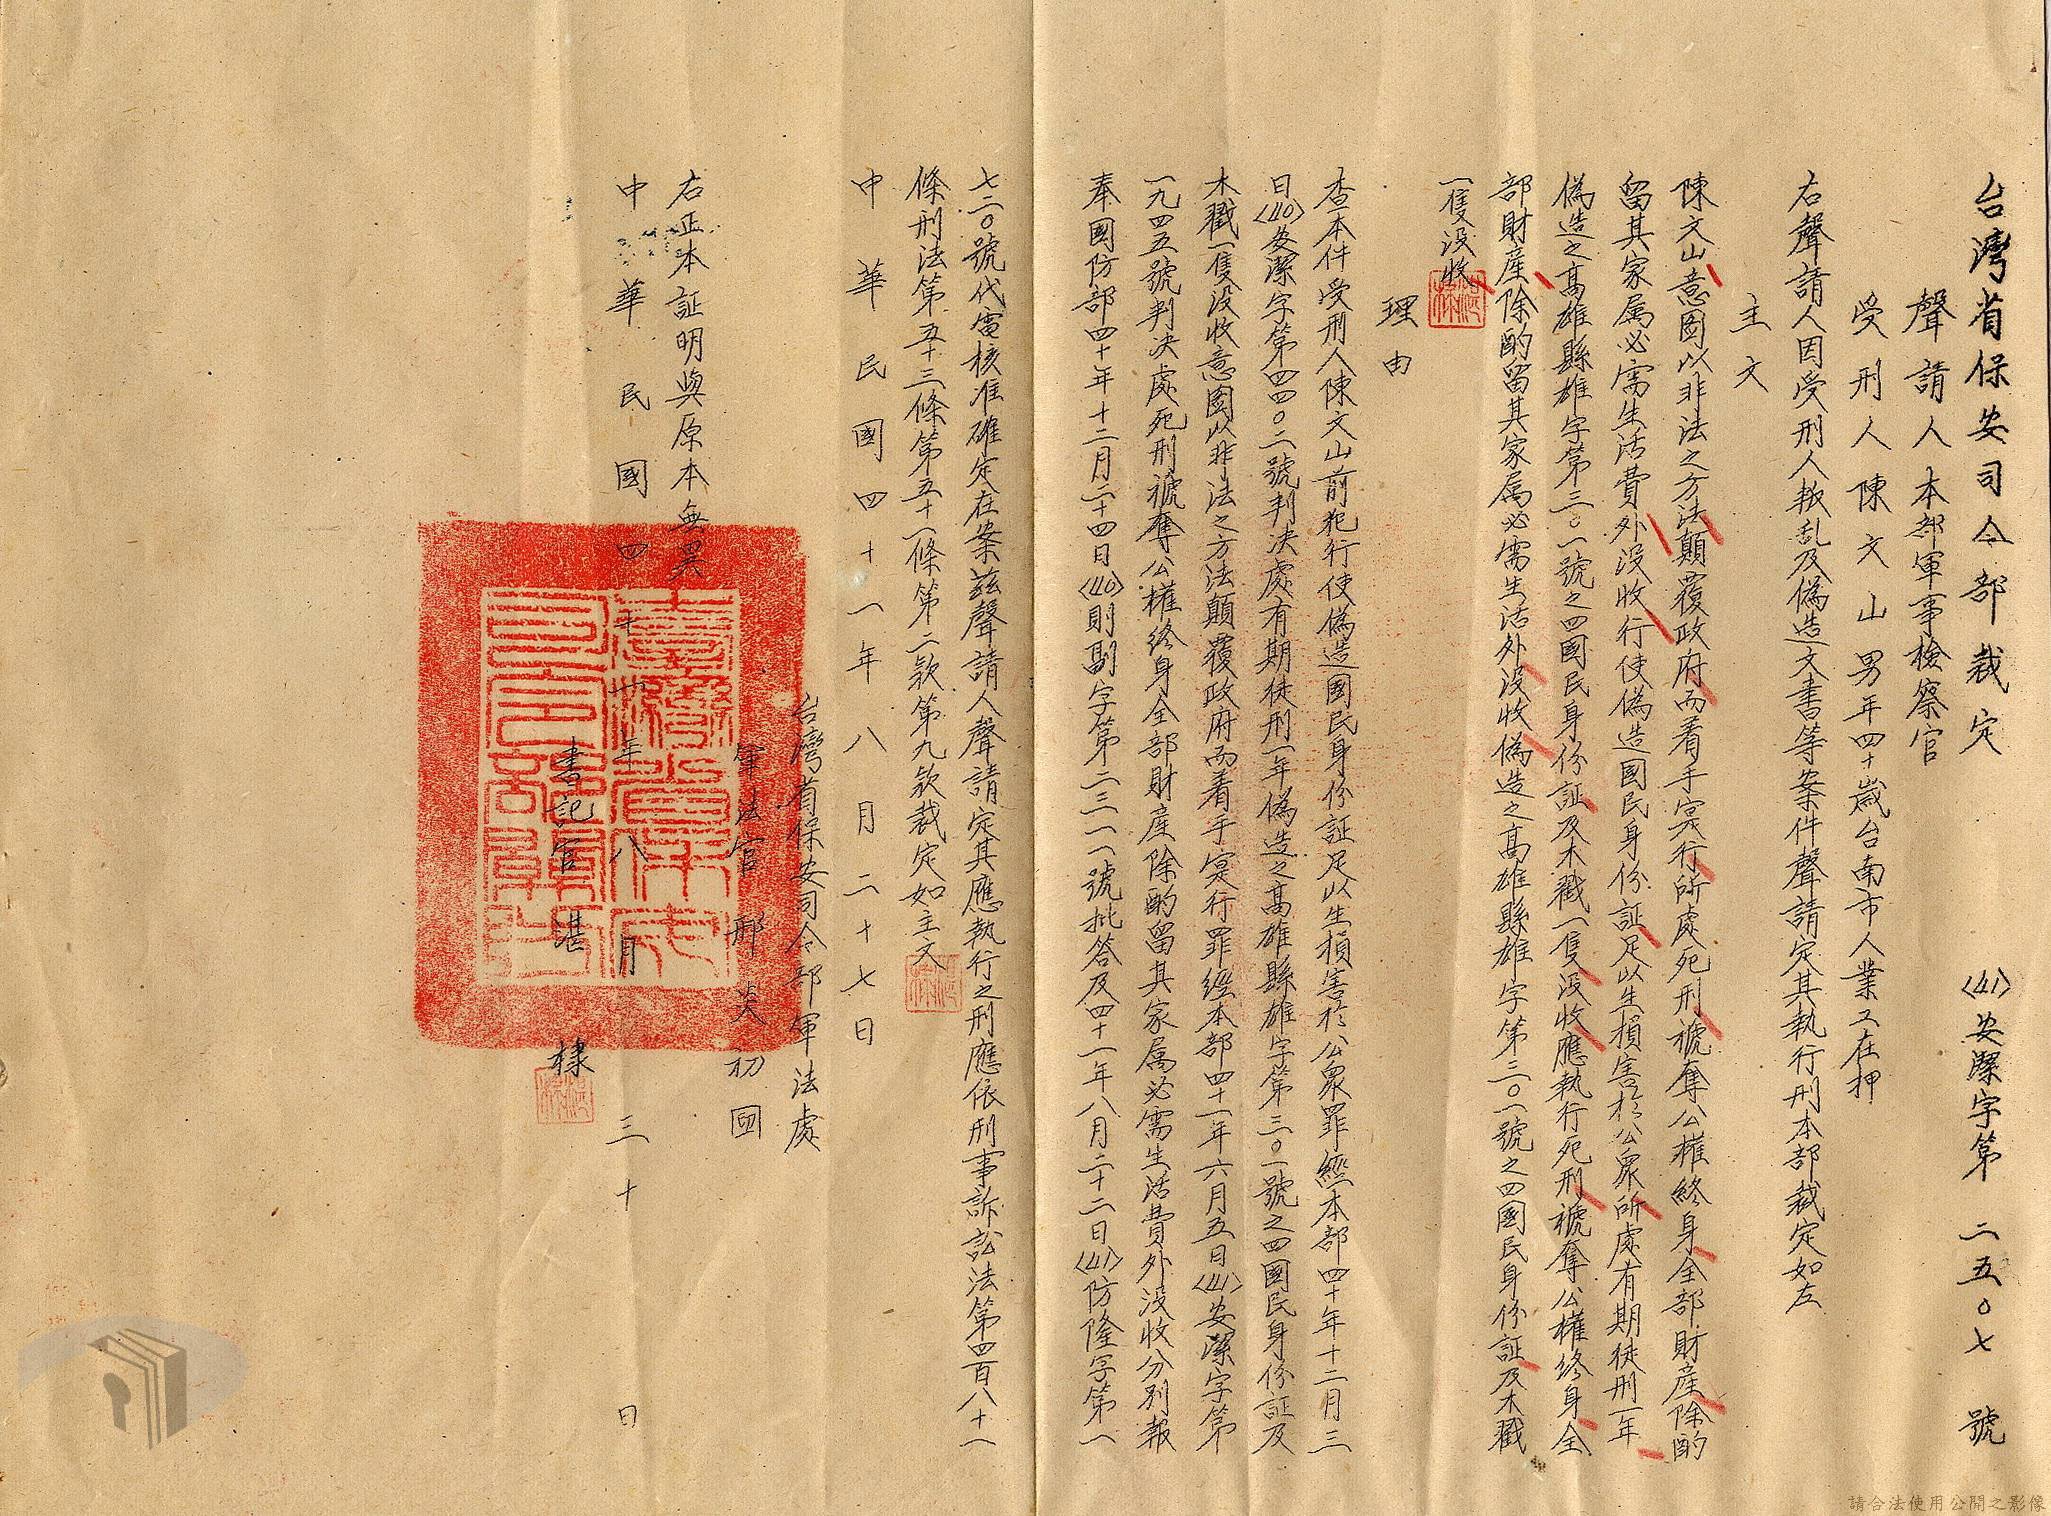 台灣省保安司令部裁定 (41)安潔字第二五〇七號
聲請人本部軍事檢察官
受刑人陳文山男年四十歲台南市人業工在押
右聲請人因受刑人叛乱及偽造文書等案件聲請定其執行刑本部裁定如左
主文
陳文山意图以非法之方法顛覆政府而着手实行所處死刑褫奪公權終身全部財產除酌
留其家属必需生活費外没收行使偽造國民身份証足以生損害於公衆所處有期徒刑一年
偽造之高雄縣雄字第三〇一號之四國民身份証及木戳一隻没收應執行死刑褫奪公權終身全
部財產除酌留其家属必需生活外没收偽造之高雄縣雄字第三〇一號之四國民身份証及木戳
一隻没收
理由
查本件受刑人陳文山前犯行使偽造國民身份証足以生損害於公衆罪經本部四十年十二月三
日(40)安潔字第四四〇二號判决處有期徒刑一年偽造之高雄縣雄字第三〇一號之四國民身份証及
木戳一隻没收意图以非法之方法顛覆政府而着手实行罪經本部四十一年六月五日(41)安潔字第
一九四五號判决處死刑褫奪公權終身全部財產除酌留其家属必需生活費外没收分别報
奉國防部四十年十二月二十四日(40)則副字第二三一一號批答及四十一年八月二十二日(41)防隆字第一
七二〇號代電核准確定在案兹聲請人聲請定其應執行之刑應依刑事訴訟法第四百八十一
條刑法第五十三條第五十一條第二款第九款裁定如主文
中華民國四十一年八月二十七日
台灣省保安司令部軍法處
軍法官邢炎初
右正本証明與原本無異
中華民國四十一年八月三十日
書記官湛棣
請合法使用公開之影像